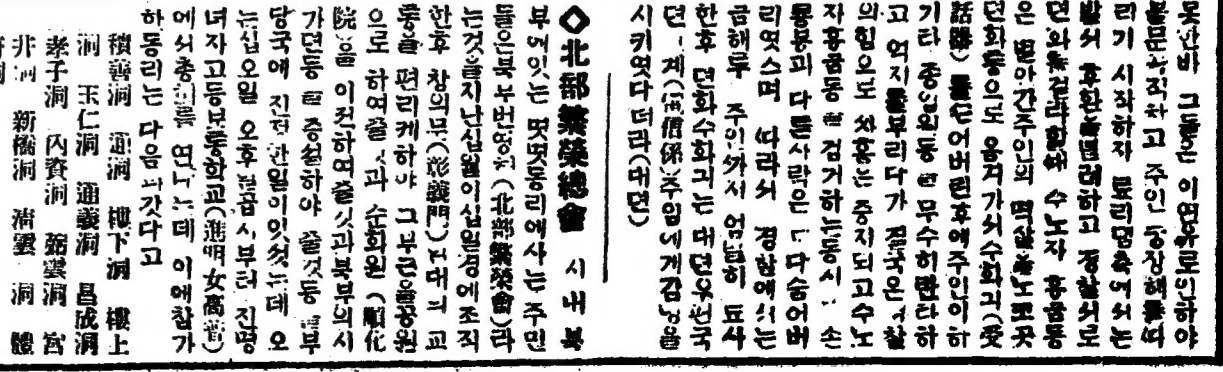 못한바 그들은 이연유로인하야
불문곡직하고 주인 등장해를따
리기 시작하자 료리뎜측에서는
발서 후환을념려하고 경찰서로
뎐화를걸랴할때 수노자 흥공등
은 주인의 멱살을노코곳
뎐화통으로 옴겨가서수화긔(受
話器)를 어버린후에주인이하
기타 종업원등을 무수히란타하
고 억지를부리다가 결국은경찰
의힘으로 싸홈은 중지되고수노
자흥공등을 검거하는동시에 손
룡봉과 다른사람은 다숨어버
리엿스며 따라서 경찰에서는
금해두 주인까지 엄밀히 됴사
한후 뎐화수화긔는 대뎐우편국
뎐 계( 信係)주임에게감뎡을
시키엿다더라(대뎐)
◇北部繁榮總會 시내북
부에잇는 몃몃동리에사는 주민
들은북부번영회(北部繁榮會)라
는것을지난십월이십일경에조직
한후 창의문(彰義門) 대의 교
통을 편리케하야 그부근을공원
으로 하여줄것과 순화원(順化
院)을 이전하여줄것과북부의시
가뎐등을 증설하야 줄것등을부
당국에 진정한일이잇섯는데 오
는십오일 오후일곱시부터 진명
녀자고등보통학교(進明女高普)
에서총회를 연다는데 이에참가
하동리는 다음과갓다고
積善洞 通洞 樓下洞 樓上
洞 玉仁洞 通義洞 昌成洞
孝子洞 內資洞 弼雲洞 宮
井洞 新橋洞 淸雲洞 體
府洞